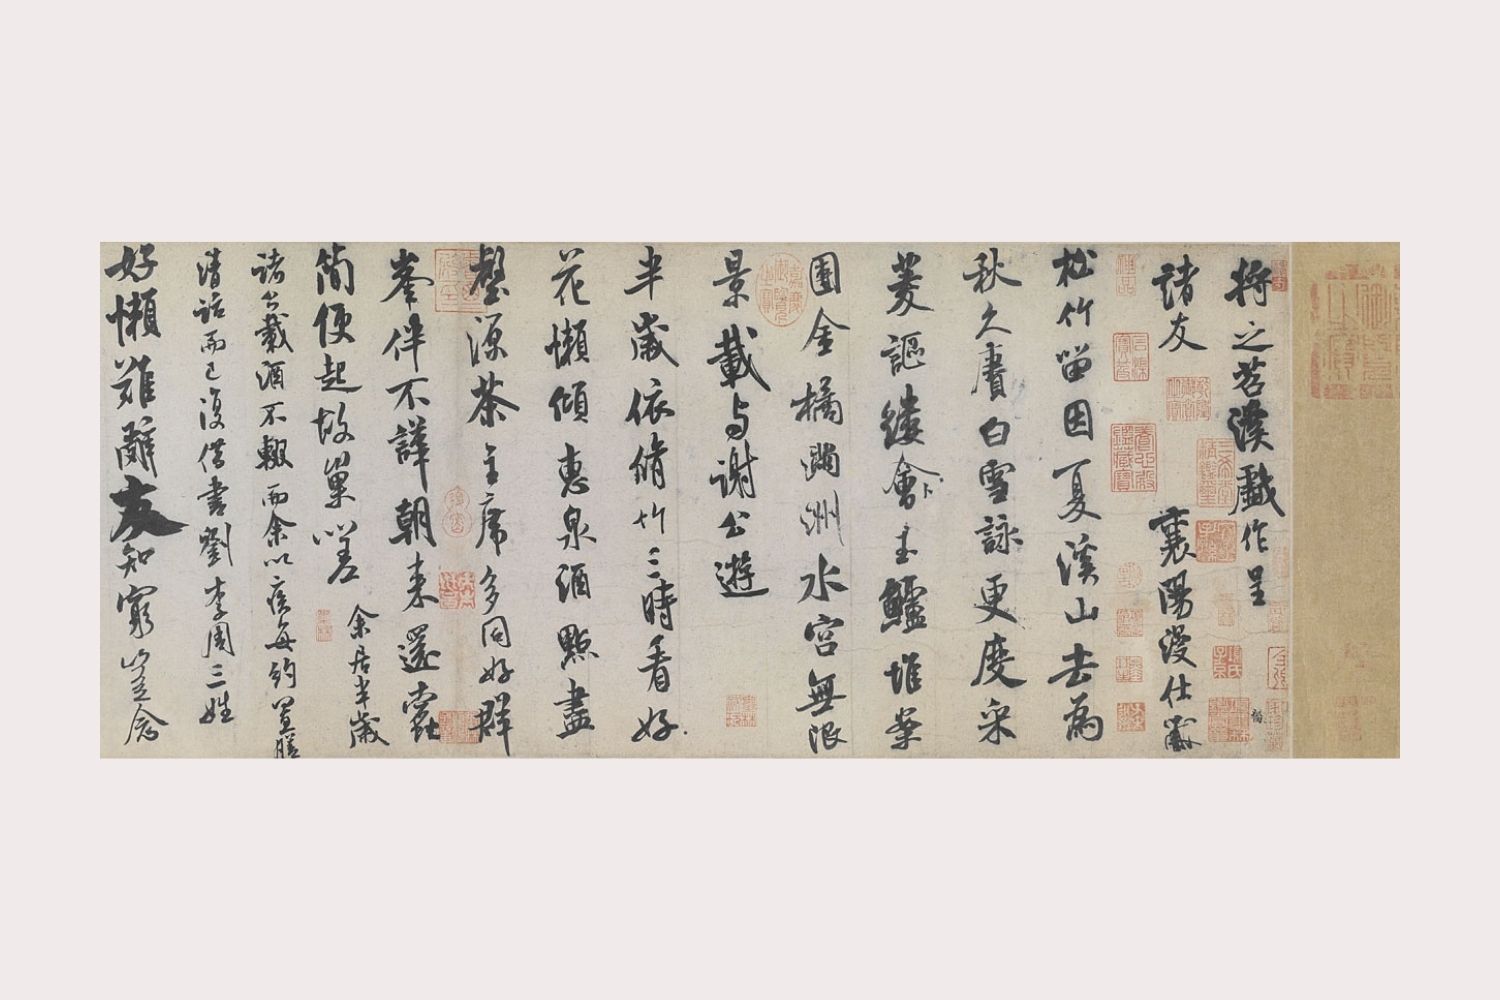 將之苕溪戲作呈
諸友 襄陽漫仕黻
松竹留因夏溪山去為
秋久賡白雪詠更度采
菱謳縷會玉鱸堆案
團金橘滿洲水宮無限
景載与謝公遊
半歲依脩竹三時看好
花懶傾惠泉酒點盡
壑源茶主席多同好群
峯伴不譁朝来還蠹
簡便起故巢嗟 余居半歲
諸公載酒不輟而余以疾每約置膳
清話而已復借書劉李周三姓
好懶難辭友知窮豈念